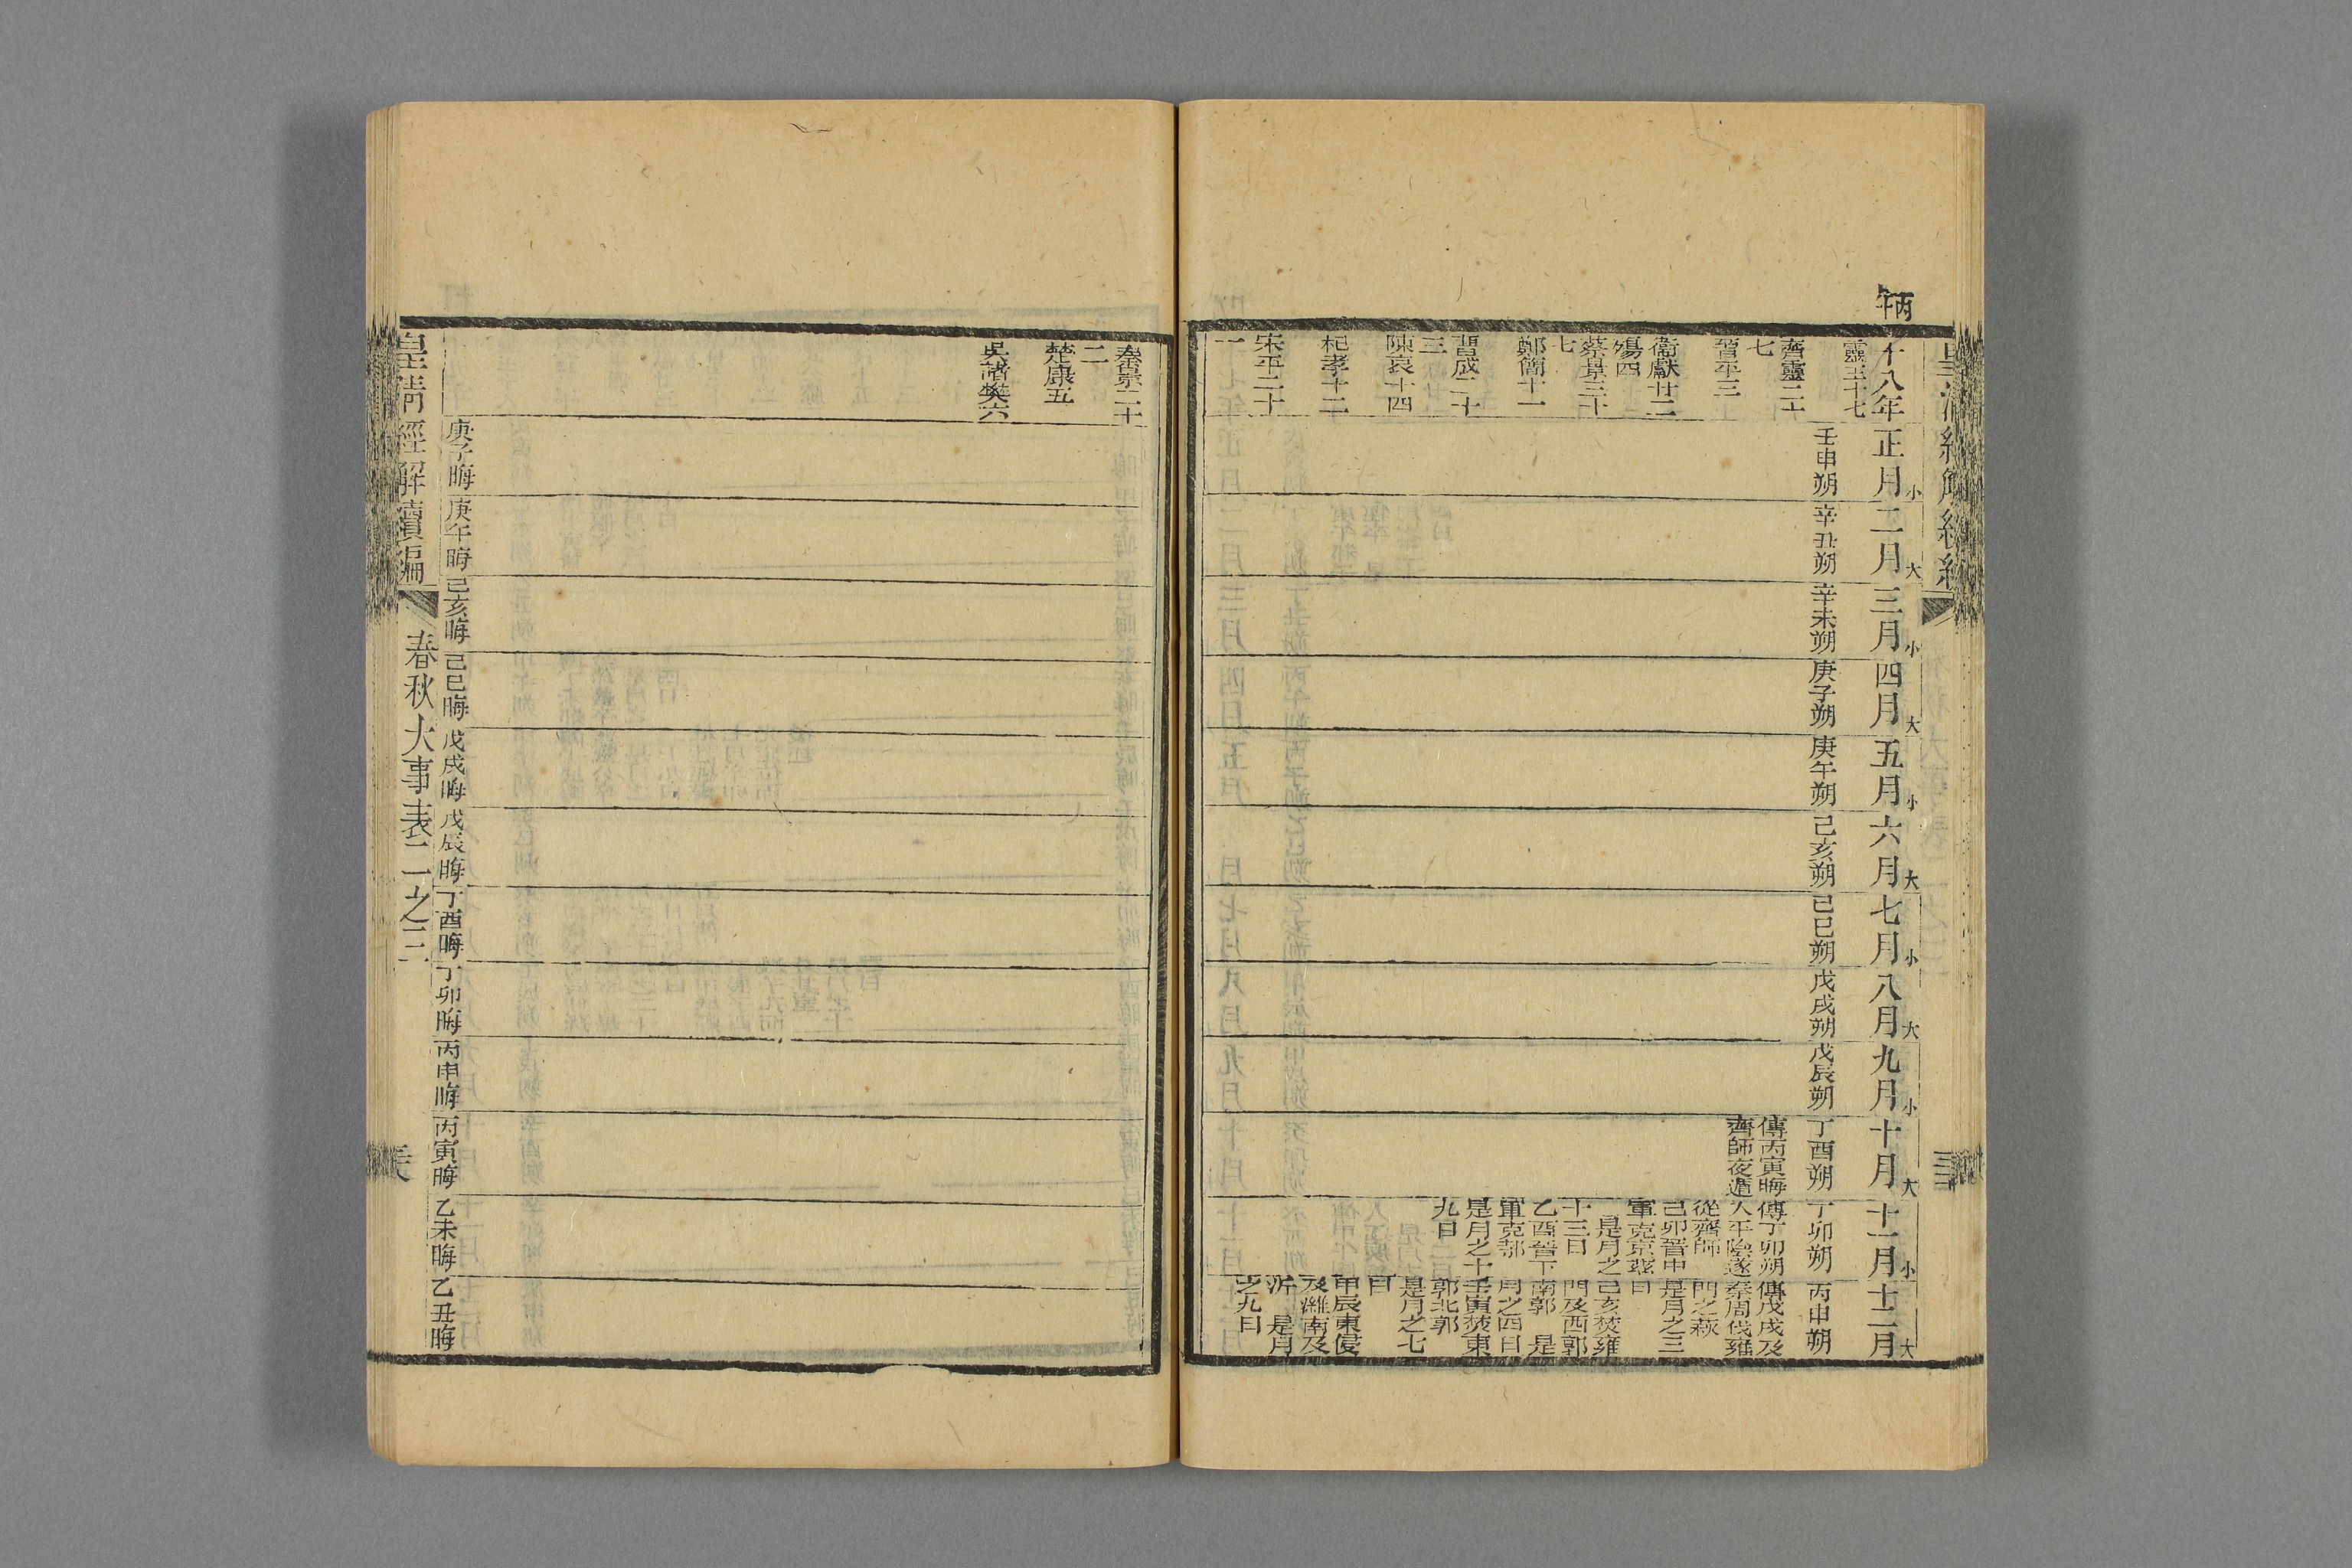 丙午
十八年
靈王十七
齊靈二十
七
晉平三
衞獻廿二
殤四
蔡景三十
七
鄭簡十一
曹成二十
三
陳哀十四
杞孝十二
宋平二十
一
正月小
壬申朔
二月大
辛丑朔
三月小
辛未朔
四月大
庚子朔
五月小
庚午朔
六月大
己亥朔
七月小
己巳朔
八月大
戊戌朔
九月小
戊辰朔
十月大
丁酉朔
傳丙寅晦
齊師夜遁
十一月小
丁卯朔
傳丁卯朔
入平陰遂
從齊師
己卯晉中
軍克京茲
是月之
十三日
乙酉晉下
軍克邿
是月之十
九日
十二月大
丙申朔
傳戊戌及
秦周伐雍
門之萩
是月之三
日
己亥焚雍
門及西郭
南郭 是
月之四日
壬寅焚東
郭北郭
是月之七
日
甲辰東侵
及濰南及
沂 是月
之九日
秦景二十
二
楚康五
吳諸樊六
庚子晦
庚午晦
己亥晦
己巳晦
戊戌晦
戊辰晦
丁酉晦
丁卯晦
丙申晦
丙寅晦
乙未晦
乙丑晦
皇清經解續編
春秋大事表二之三